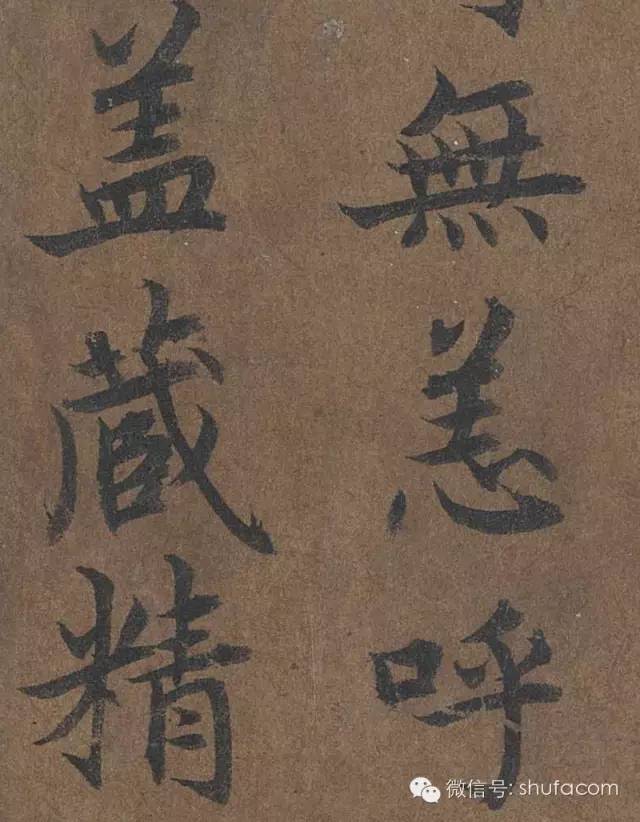 無恙呼
盖藏精
微信号: shufacom